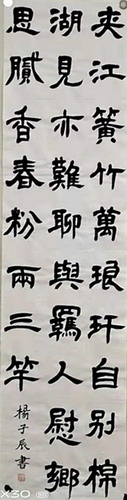 夾江簧竹萬琅玕自別棉
湖見亦難聊與羈人慰鄉
思膩香春粉兩三竿
楊子辰書
X30